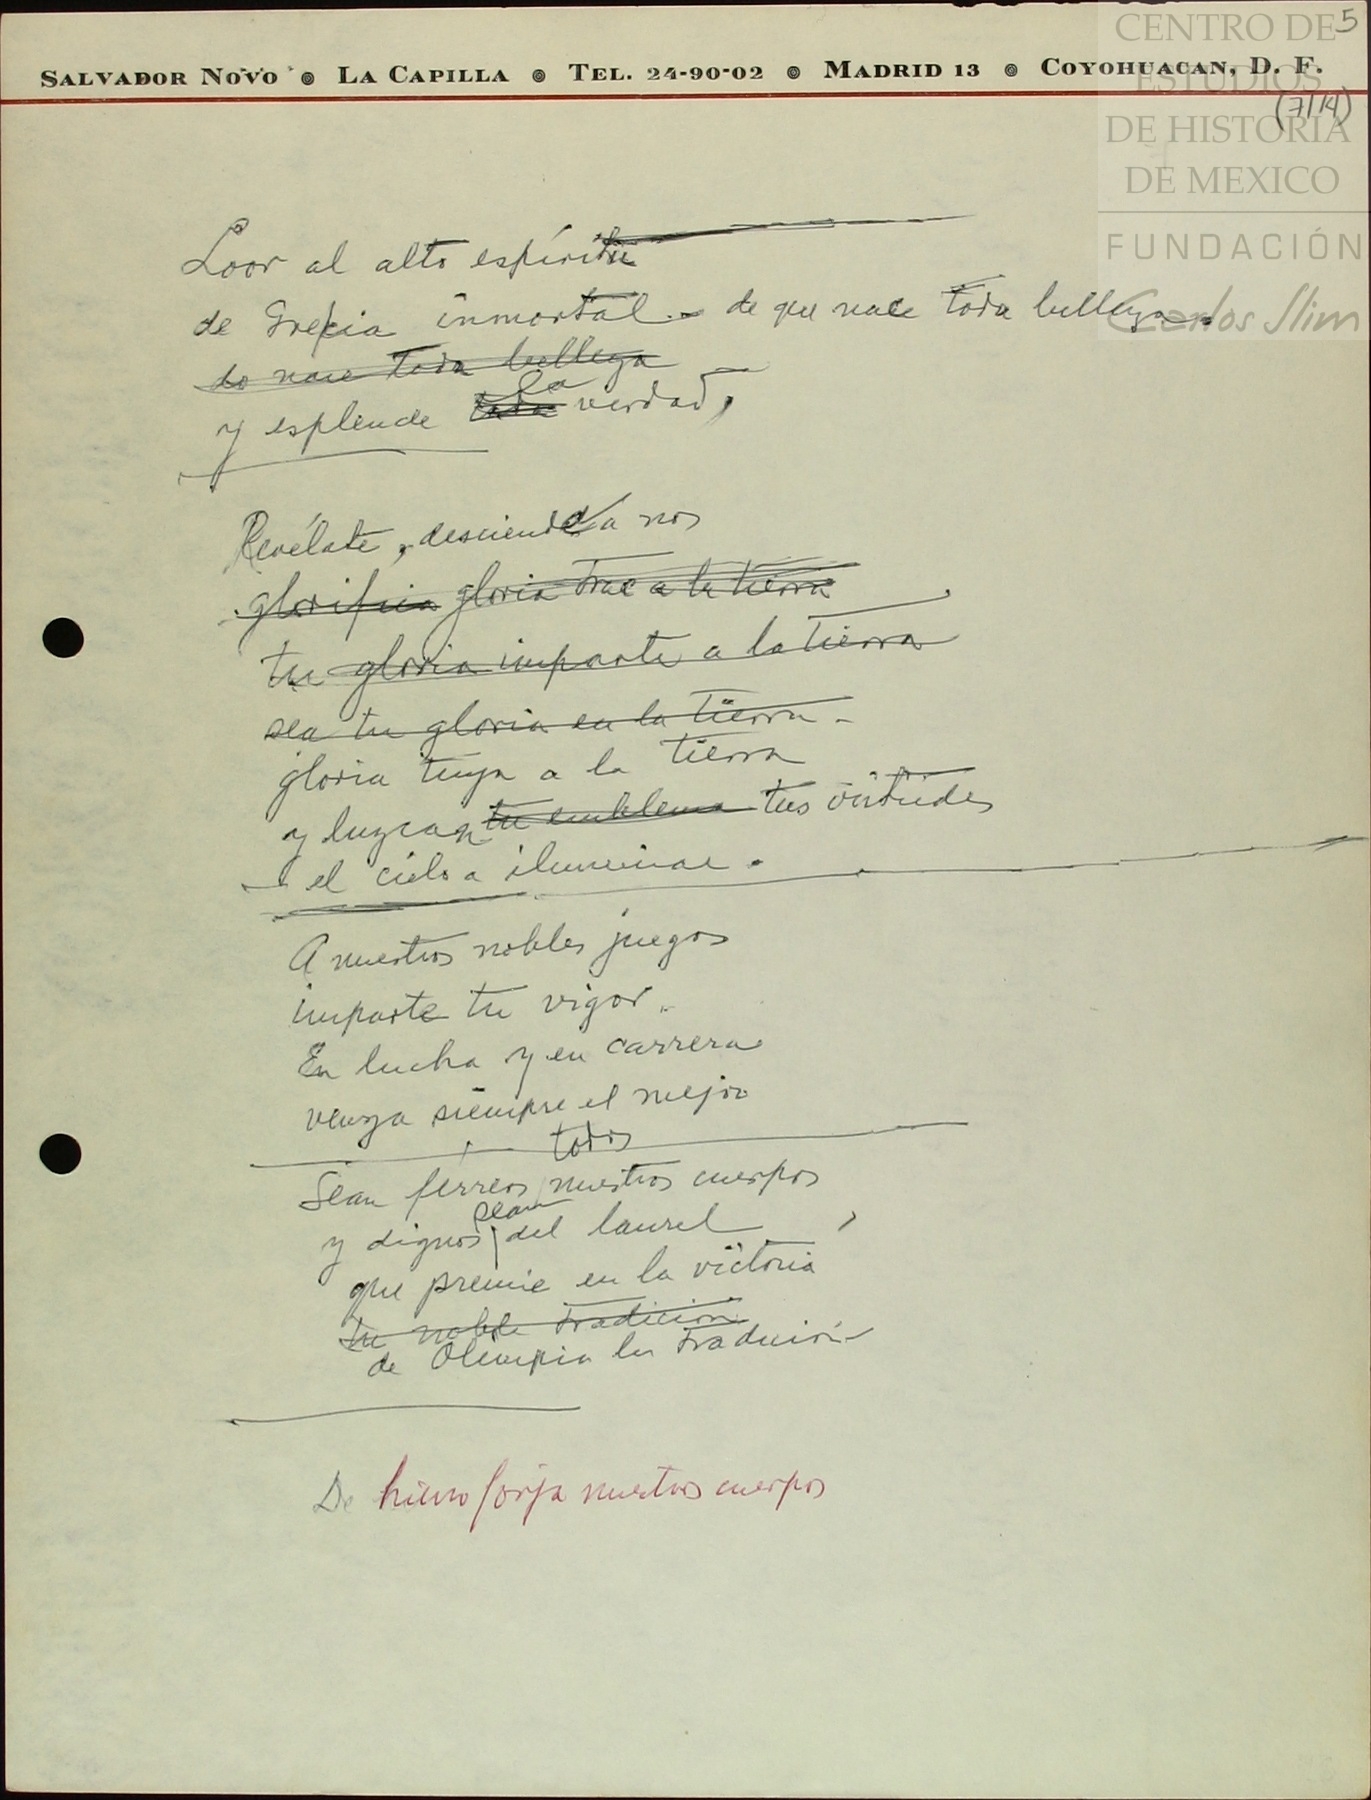 5
SALVADOR NOVO ⊚ LA CAPILLA ⊚ TEL. 24-90-02 ⊚ MADRID 13 ⊚ COYOHUACAN, D. F.
(7/14)
CENTRO DE
ESTUDIOS
DE HISTORIA
DE MEXICO
FUNDACIÓN
Carlos Slim
Loor al alto espíritu
de Grecia inmortal - de que nace toda belleza.
do nace toda belleza
y esplende toda la verdad,
Revélate, desciende a nos
glorifica gloria trae a la tierra
tu gloria imparte a la tierra
sea tu gloria en la tierra -
gloria tuya a la tierra
y luzcan tu emblema tus virtudes
el cielo a iluminar.
A nuestros nobles juegos
imparte tu vigor.
En lucha y en carrera
venza siempre el mejor
todos
Sean férreos nuestros cuerpos
sean
y dignos del laurel
que premie en la victoria
tu noble tradición
de Olimpia la tradición
De hierro forja nuestros cuerpos